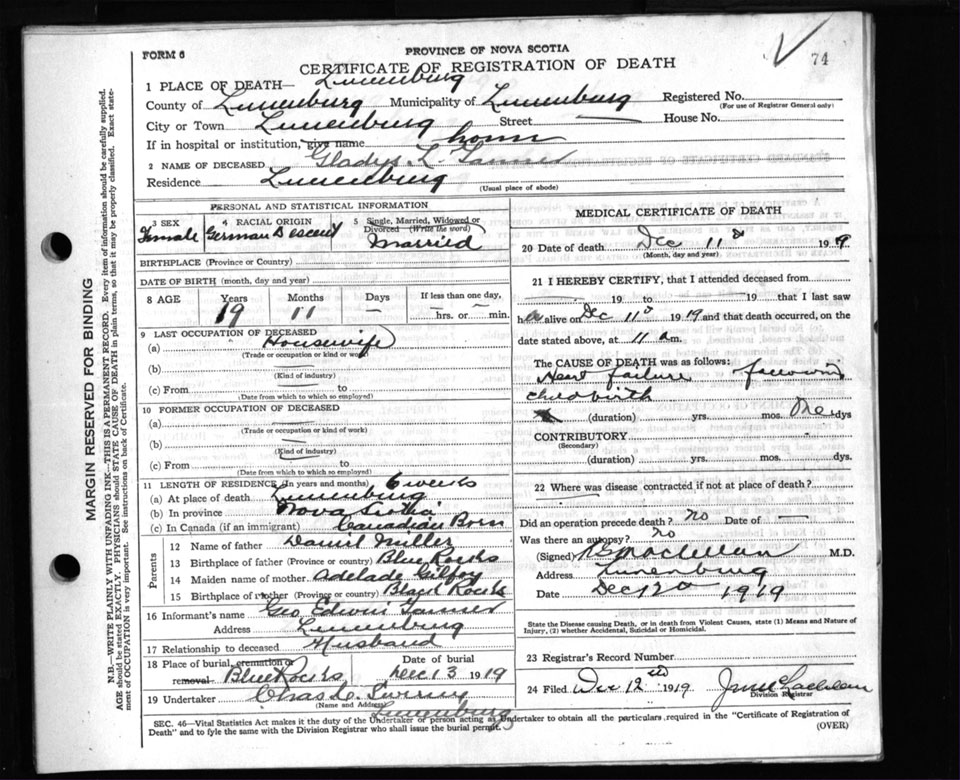 FORM 6
PROVINCE OF NOVA SCOTIA
74
CERTIFICATE OF REGISTRATION OF DEATH
1 PLACE OF DEATH— Lunenburg
County of Lunenburg Municipality of Lunenburg Registered No.
(For use of Registrar General only)
City or Town Lunenburg Street House No.
If in hospital or institution, give name home
2 NAME OF DECEASED Gladys L. Tanner
Residence Lunenburg
(Usual place of abode)
PERSONAL AND STATISTICAL INFORMATION
3 SEX 4 RACIAL ORIGIN 5 Single, Married, Widowed or Divorced (Write the word)
Female German Descent Married
BIRTHPLACE (Province or Country)
DATE OF BIRTH (month, day and year)
8 AGE Years Months Days If less than one day,
19 11 — hrs. or min.
9 LAST OCCUPATION OF DECEASED
(a) Housewife
(Trade or occupation or kind of work)
(b)
(Kind of industry)
(c) From to
(Date from which to which so employed)
10 FORMER OCCUPATION OF DECEASED
(a)
(Trade or occupation or kind of work)
(b)
(Kind of industry)
(c) From to
(Date from which to which so employed)
11 LENGTH OF RESIDENCE (in Years and months) 6 weeks
(a) At place of death Lunenburg
(b) In province Nova Scotia
(c) In Canada (if an immigrant) Canadian Born
Parents
12 Name of father Daniel Miller
13 Birthplace of father (Province or country) Blue Rocks
14 Maiden name of mother Adelade Gilfoy
15 Birthplace of mother (Province or country) Black Rocks
16 Informant's name Geo Edwin Tanner
Address Lunenburg
17 Relationship to deceased Husband
18 Place of burial, cremation or removal Blue Rocks Date of burial Dec 13 1919
19 Undertaker Chas L.
(Name and Address)
Lunenburg
MEDICAL CERTIFICATE OF DEATH
20 Date of death Dec 11 1919
(Month, day and year)
21 I HEREBY CERTIFY, that I attended deceased from
19 to 19 that I last saw
her alive on Dec 11 1919 and that death occurred, on
date stated above, at 11 a.m.
The CAUSE OF DEATH was as follows:
Heart failure following
childbirth
(duration) yrs. mos. One dys
CONTRIBUTORY
(Secondary)
(duration) yrs. mos. dys.
22 Where was disease contracted if not at place of death?
Did an operation precede death? no Date of —
Was there an autopsy? no
(Signed) M.D.
Address Lunenburg
Date Dec 12 1919
State the Disease causing Death, or in death from Violent Causes, state (1) Means and Nature of
Injury, (2) whether Accidental, Suicidal or Homicidal.
23 Registrar's Record Number
24 Filed Dec 12th 1919
Division Registrar
SEC. 46—Vital Statistics Act makes it the duty of the Undertaker or person acting as Undertaker to obtain all the particulars required in the "Certificate of Registration of
Death" and to fyle the same with the Division Registrar who shall issue the burial permit.
(OVER)
MARGIN RESERVED FOR BINDING
N.B.—WRITE PLAINLY WITH UNFADING INK—THIS IS A PERMANENT RECORD. Every item of information should be carefully supplied.
AGE should be stated EXACTLY. PHYSICIANS should STATE CAUSE OF DEATH in plain terms, so that it may be properly classified. Exact statement
of OCCUPATION is very important. See instructions on back of Certificate.